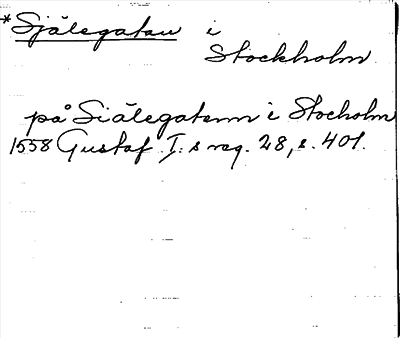 *Själegatan i
Stockholm
på Siälegatenn i Stocholm
1558 Gustaf I:s reg. 28, s. 401.